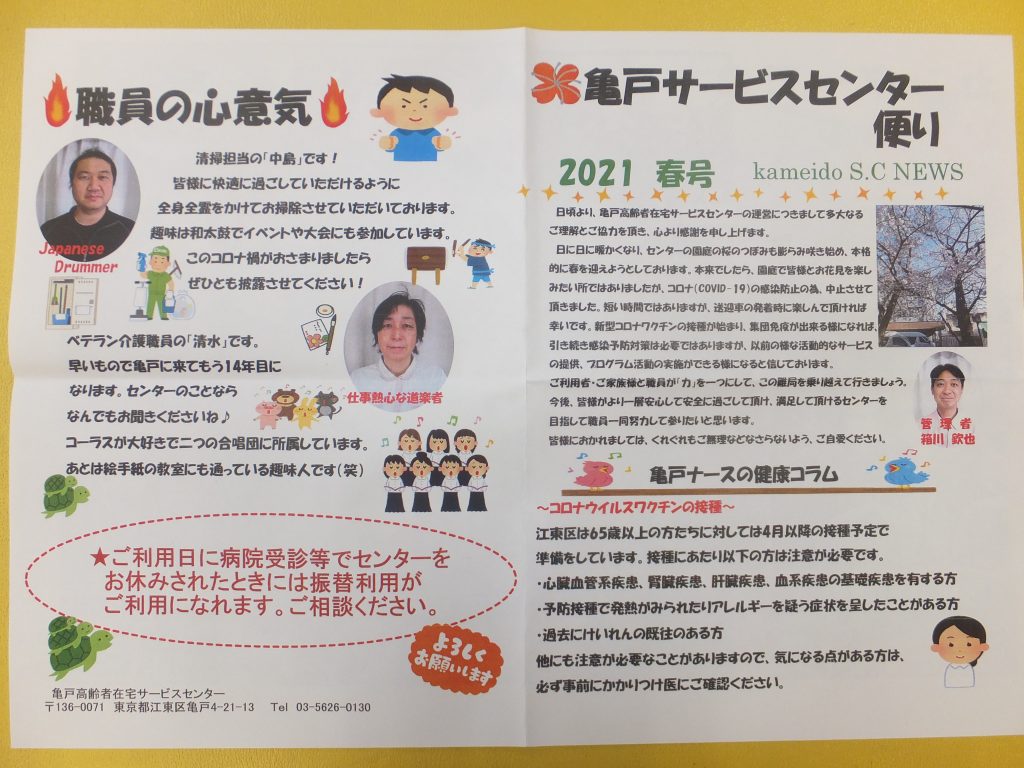 職員の心意気
清掃担当の「中島」です！
皆様に快適に過ごしていただけるように
全身全霊をかけてお掃除させていただいております。
趣味は和太鼓でイベントや大会にも参加しています。
このコロナ禍がおさまりましたら
ぜひとも披露させてください！
Japanese
Drummer
ベテラン介護職員の「清水」です。
早いもので亀戸に来てもう14年目に
なります。センターのことなら
なんでもお聞きくださいね♪
コーラスが大好きで二つの合唱団に所属しています。
あとは絵手紙の教室にも通っている趣味人です(笑)
仕事熱心な道楽者
★ご利用日に病院受診等でセンターを
お休みされたときには振替利用が
ご利用になれます。ご相談ください。
よろしく
お願いします
亀戸高齢者在宅サービスセンター
〒136-0071 東京都江東区亀戸4-21-13 Tel 03-5626-0130
亀戸サービスセンター
便り
2021 春号 kameido S.C NEWS
日頃より、亀戸高齢者在宅サービスセンターの運営につきまして多大なる
ご理解とご協力を頂き、心より感謝を申し上げます。
日に日に暖かくなり、センターの園庭の桜のつぼみも膨らみ咲き始め、本格
的に春を迎えようとしております。本来でしたら、園庭で皆様とお花見を楽し
みたい所ではありましたが、コロナ(COVID-19)の感染防止の為、中止させて
頂きました。短い時間ではありますが、送迎車の発着時に楽しんで頂ければ
幸いです。新型コロナワクチンの接種が始まり、集団免疫が出来る様になれば、
引き続き感染予防対策は必要ではありますが、以前の様な活動的なサービス
の提供、プログラム活動の実施ができる様になると信じております。
ご利用者・ご家族様と職員が「力」を一つにして、この難局を乗り越えて行きましょう。
今後、皆様がより一層安心して安全に過ごして頂け、満足して頂けるセンターを
目指して職員一同努力して参りたいと思います。
皆様におかれましては、くれぐれもご無理などなさらないよう、ご自愛ください。
管理者
箱川 欽也
亀戸ナースの健康コラム
～コロナウイルスワクチンの接種～
江東区は65歳以上の方たちに対しては4月以降の接種予定で
準備をしています。接種にあたり以下の方は注意が必要です。
・心臓血管系疾患、腎臓疾患、肝臓疾患、血系疾患の基礎疾患を有する方
・予防接種で発熱がみられたりアレルギーを疑う症状を呈したことがある方
・過去にけいれんの既往のある方
他にも注意が必要なことがありますので、気になる点がある方は、
必ず事前にかかりつけ医にご確認ください。